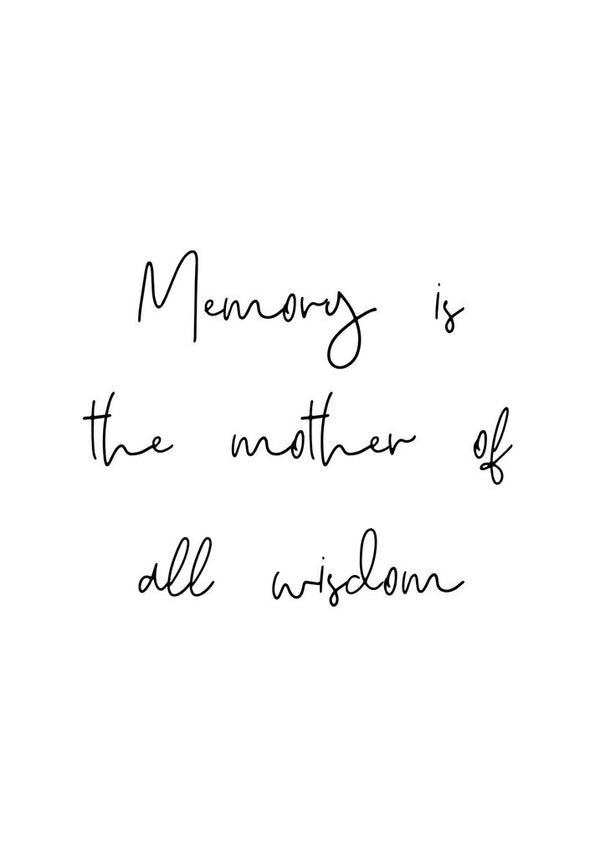 Memory is
the mother of
all wisdom